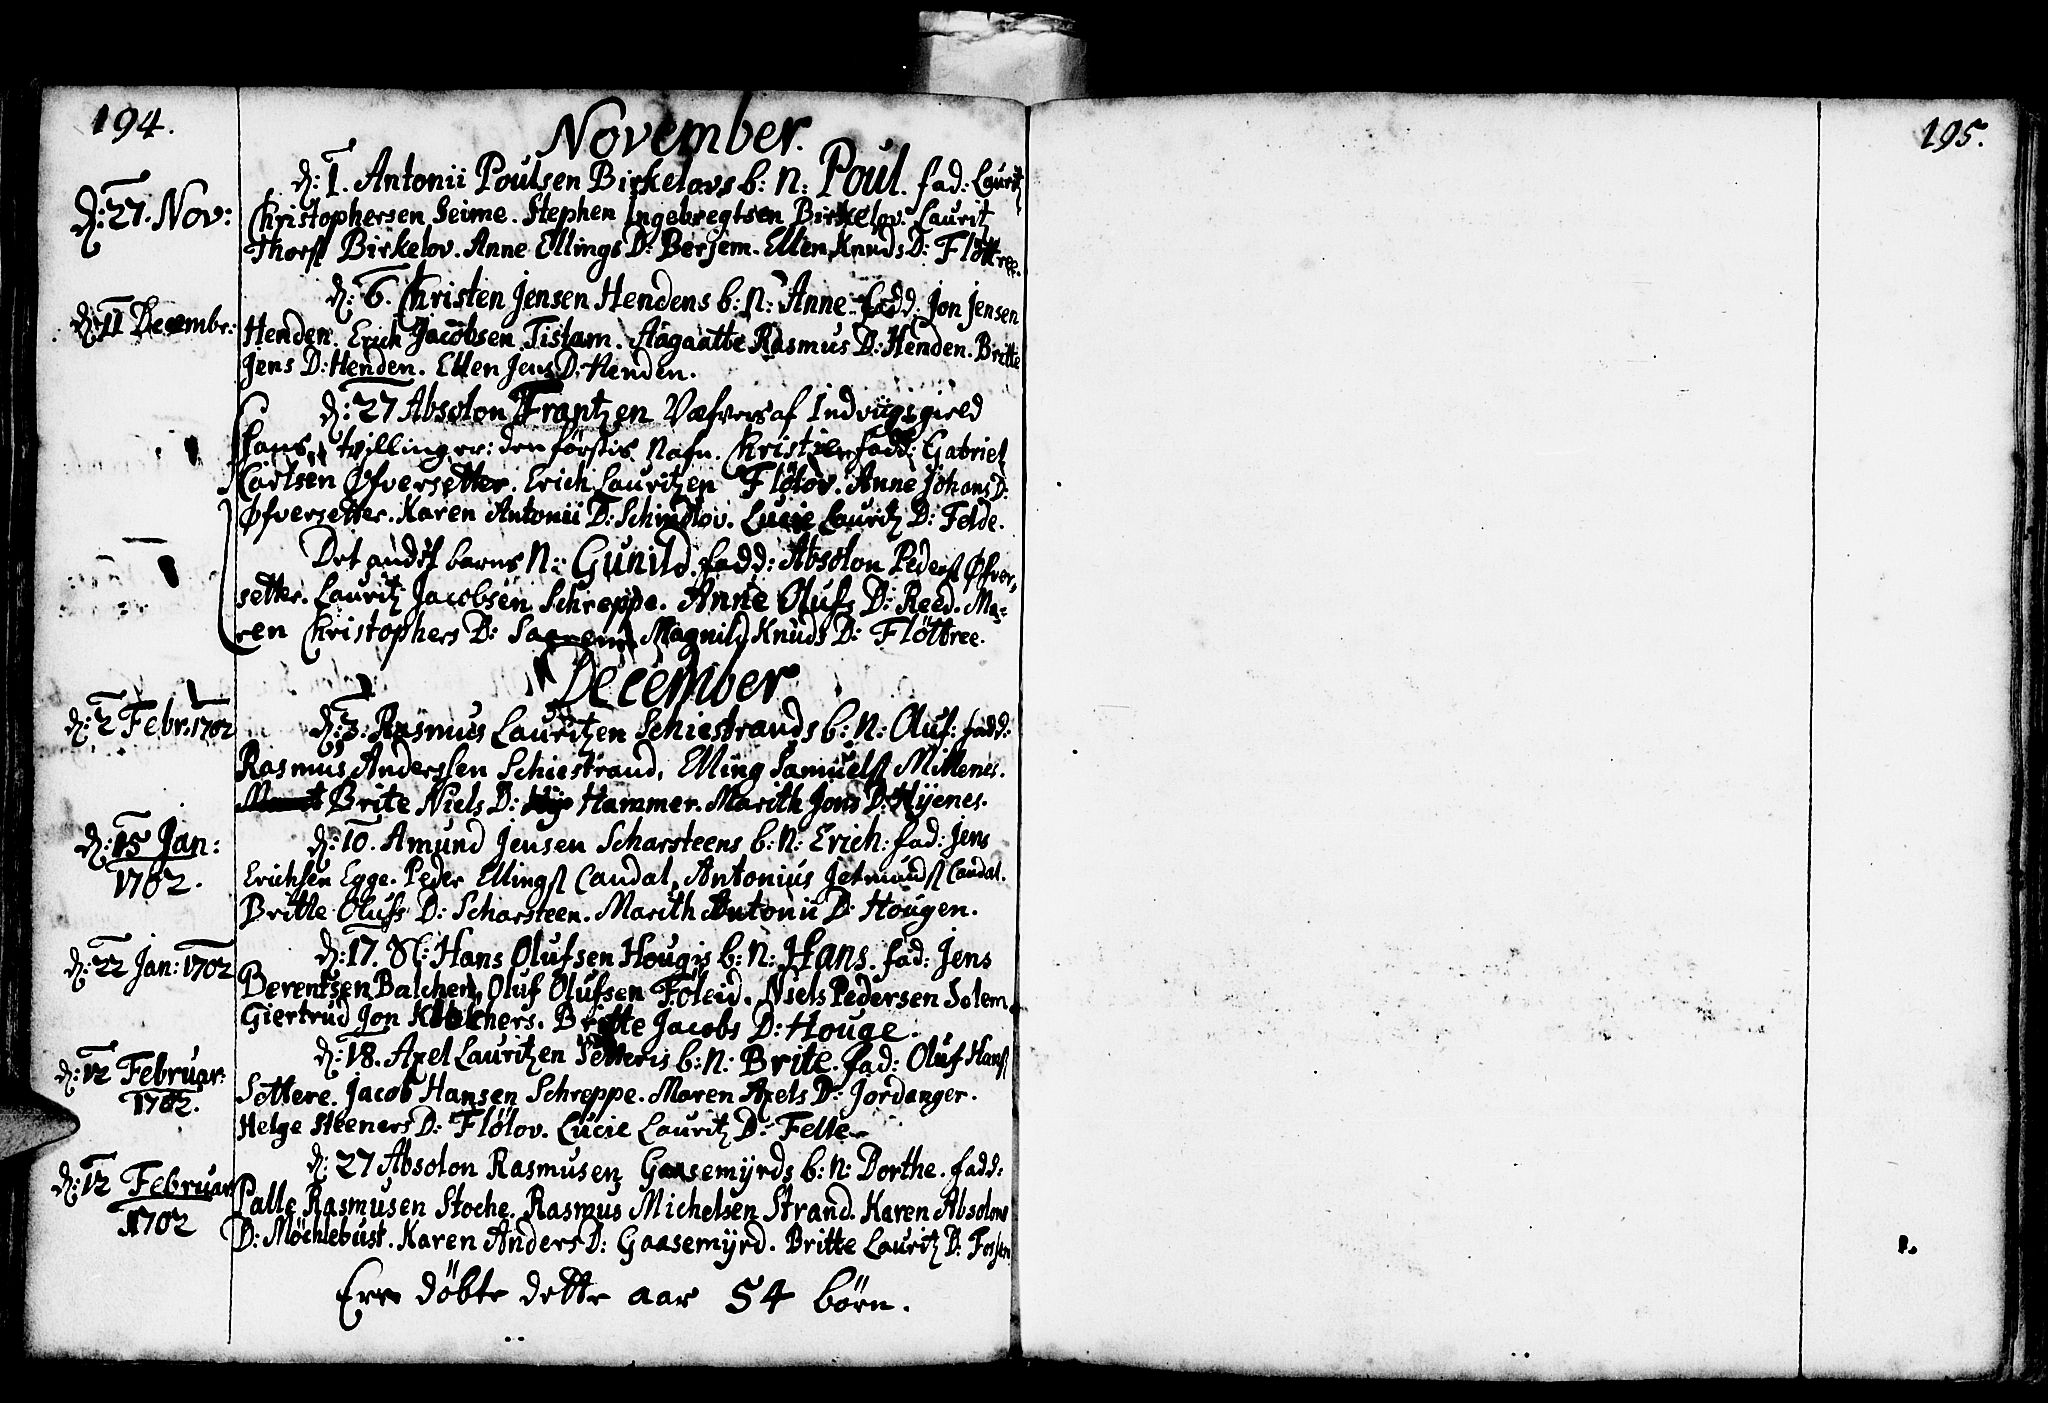 194.
November.
d: 1. Antonii Poulsen Birkelovs b: N: Poul. fad: Lauritz
d: 27. Nov: Christophersen Seime. Stephen Ingebregtsen Birkelov. Lauritz
Thorss Birkelov. Anne Ellings D: Berjem. Ellen Knuds D: Flöttree.
d: 6. Christen Jensen Hendens b: N: Anne. fadd: Jon Jensen
d: 11 Decembr: Henden. Erich Jacobsen Tistam. Aagaatte Rasmus D: Henden. Britte
Jens D: Henden. Ellen Jens D. Henden.
d: 27 Absolon Frantzen Væfvers af Indviigsgield
Hans tvillinger: den förstis Nafn. Christien fadd: Gabriel
Carlsen Øfversetter. Erich Lauritzen Flölov. Anne Johans D:
Øfversetter. Karen Antonii D: Schindlov. Lucie Lauritz D: Felde.
Det andet barns N: Gunild. fadd: Absolon Peders Øfver-
setter. Lauritz Jacobsen Schreppe. Anne Olufs D: Reed. Ma-
ren Christophers D: Magnild Knuds D: Flöttree.
December
d: 2 Febr. 1702 d: 3: Rasmus Lauritzen Schiestrands b: N: Oluf: fadd:
Rasmus Anderssen Schiestrand. Elling Samuels Mittenes.
Brite Niels D: Hammer. Marith Jons D: Hÿenes.
d: 15 Jan: d: 10. Amund Jensen Scharsteens b: N: Erich: fad: Jens
1702. Erichsen Egge. Peder Ellings Caudal. Antonius Jetmunds Caudal.
Britte Olufs D: Scharsteen. Marith Antonii D: Hougen.
d: 22 Jan: 1702 d: 17. Sl: Hans Olufsen Hougis b: N: Hans. fad: Jens
Berentsen Balchen, Oluf Olufsen Föleid. Niels Pedersen Solem.
Giertrud Jon Britte Jacobs D: Houge.
d: 12 Februar: d: 18. Axel Lauritzen Setteris b: N: Brite. fad: Oluf Hans
1702. Settere. Jacob Hansen Schreppe. Maren Axels D: Jordanger.
Helge Steeners D: Flölov. Lucie Lauritz D: Felle
d: 12 Februar d: 27 Absolon Rasmusen Gaasemÿrds b: N: Dorthe. fadd:
1702 Palle Rasmusen Stoche. Rasmus Michelsen Strand. Karen Absolons
D: Möchlebust. Karen Anders D: Gaasemÿrd. Britte Lauritz D: Fossen
Ere döbte dette aar 54 börn.
195.